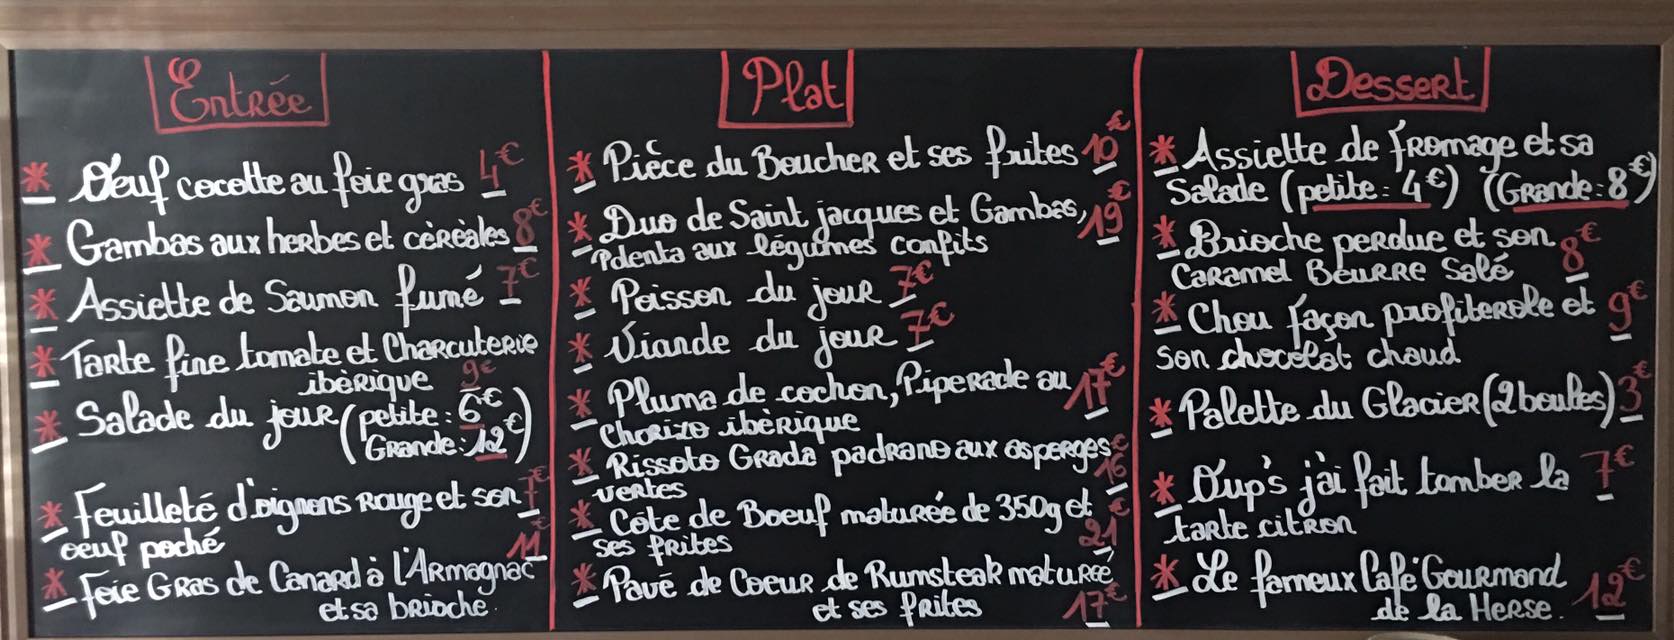 Entrée
* Œuf cocotte au foie gras 4€
* Gambas aux herbes et céréales 8€
* Assiette de Saumon fumé 7€
* Tarte fine tomate et Charcuterie
ibèrique 9€
* Salade du jour (petite : 6€
Grande : 12€)
* Feuilleté d'oignons Rouge et son 7€
oeuf poché
* Foie Gras de Canard à l'Armagnac 11€
et sa brioche.
Plat
* Pièce du Boucher et ses frites 10€
* Duo de Saint jacques et Gambas, 19€
Polenta aux légumes confits
* Poisson du jour 7€
* Viande du jour 7€
* Pluma de cochon, Piperade au 17€
Chorizo ibèrique
* Rissoto Grada padrano aux asperges 16€
vertes
* Côte de Boeuf maturée de 350g et 21€
ses frites
* Pavé de Coeur de Rumsteak maturée
et ses frites 17€
Dessert
* Assiette de fromage et sa
Salade (petite : 4€) (Grande : 8€)
* Brioche perdue et son 8€
Caramel Beurre Salé
* Chou façon profiterole et 9€
son chocolat chaud
* Palette du Glacier (2 boules) 3€
* Oup's j'ai fait tomber la 7€
tarte citron
* Le fameux Café Gourmand 12€
de la Herse.